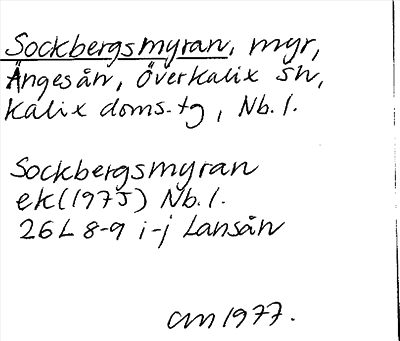 Sockbergsmyran, myr,
Ängesån, Överkalix sn,
Kalix doms.tg, Nb.l.
Sockbergsmyran
ek(1975) Nb.l.
26L 8-9 i-j Lansån
am 1977.